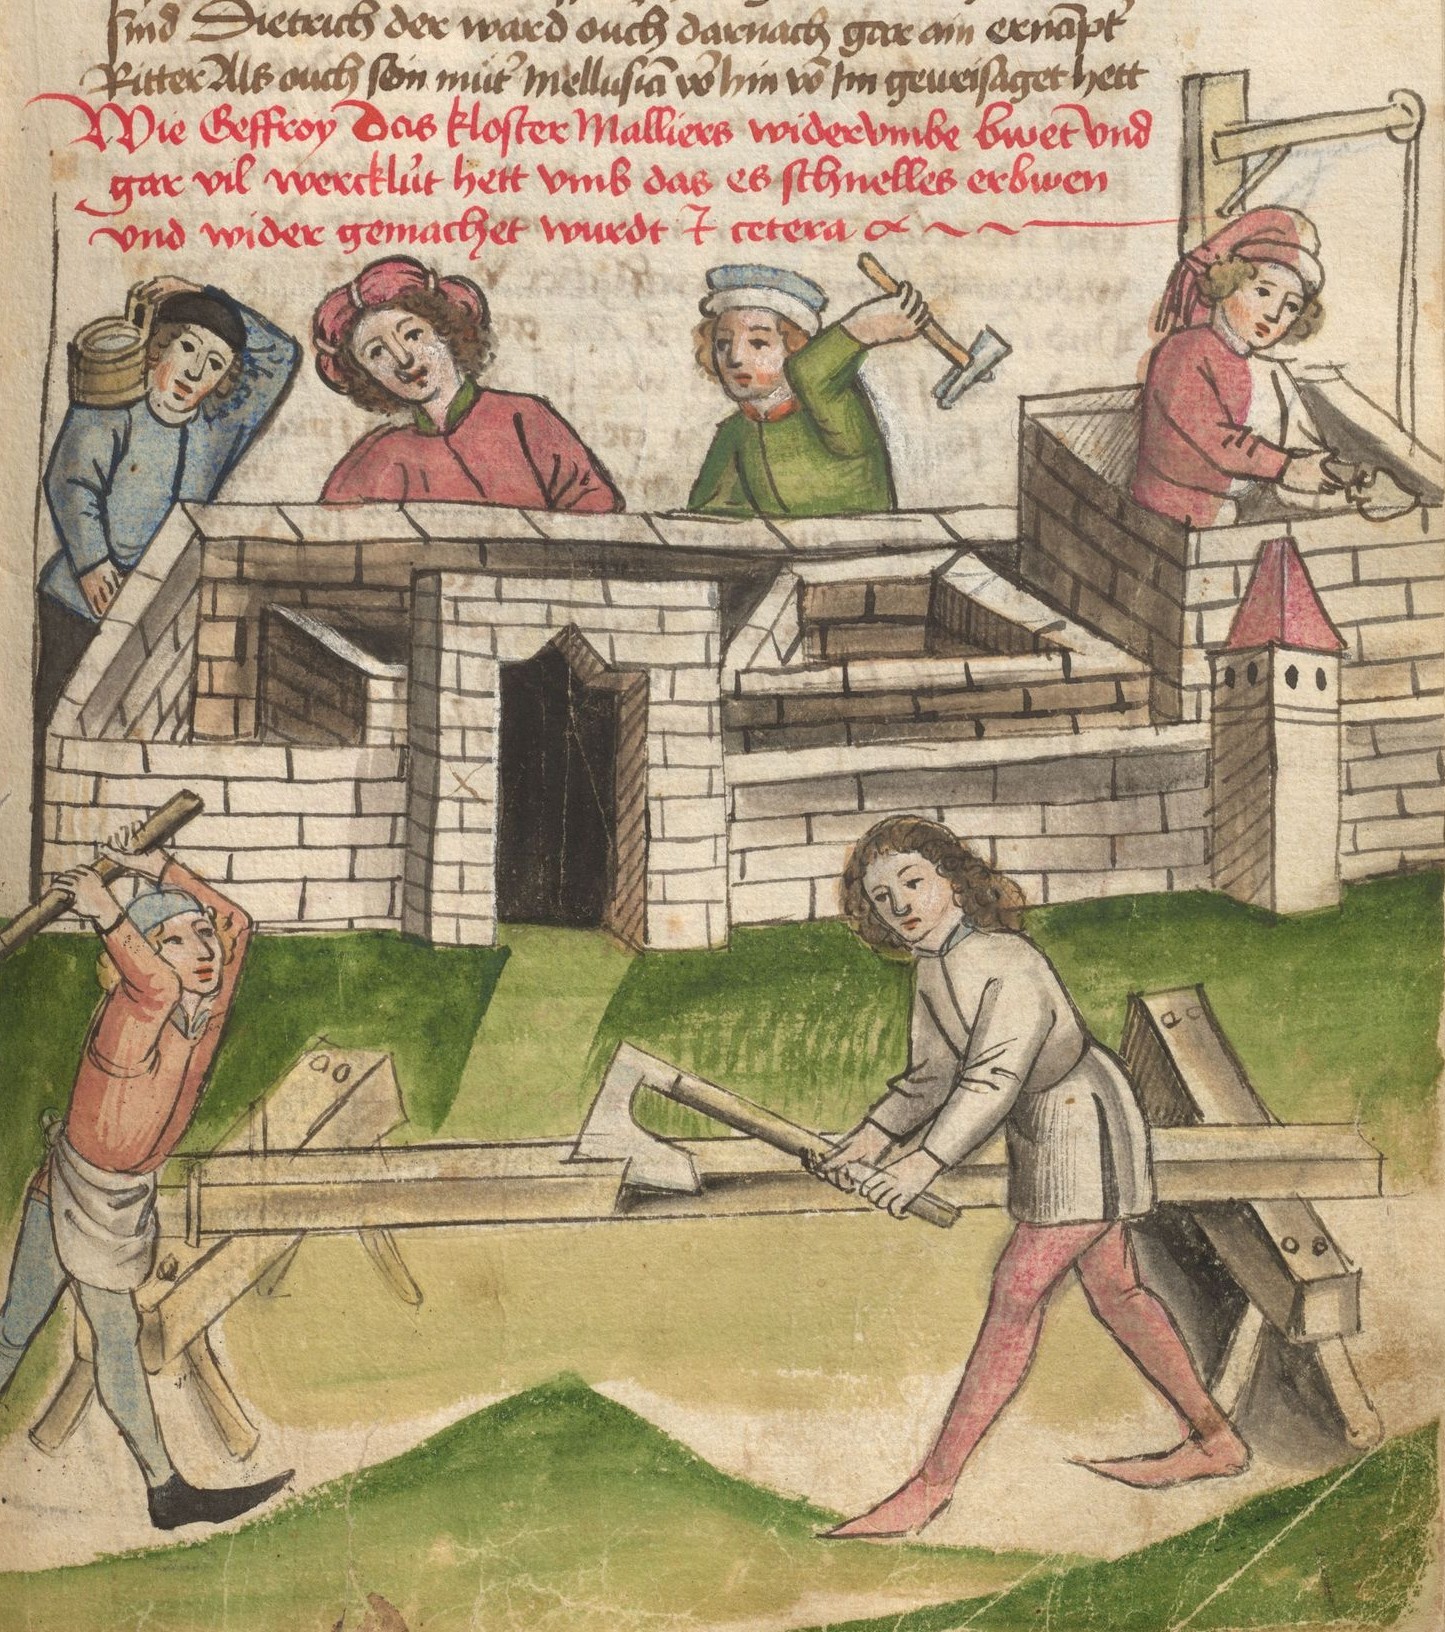 sind Dietrich der ward ouch darnach gar ain ernāpt
Ritter Als ouch sein mut' Mellusiā vō hin vō Im geweisaget hett
Wie Geffroy Das kloster Malliers widervmbe bwet vnd
gar vil wercklüt hett vmb das es schnelles erbwen
vnd wider gemachet wurdt cetera